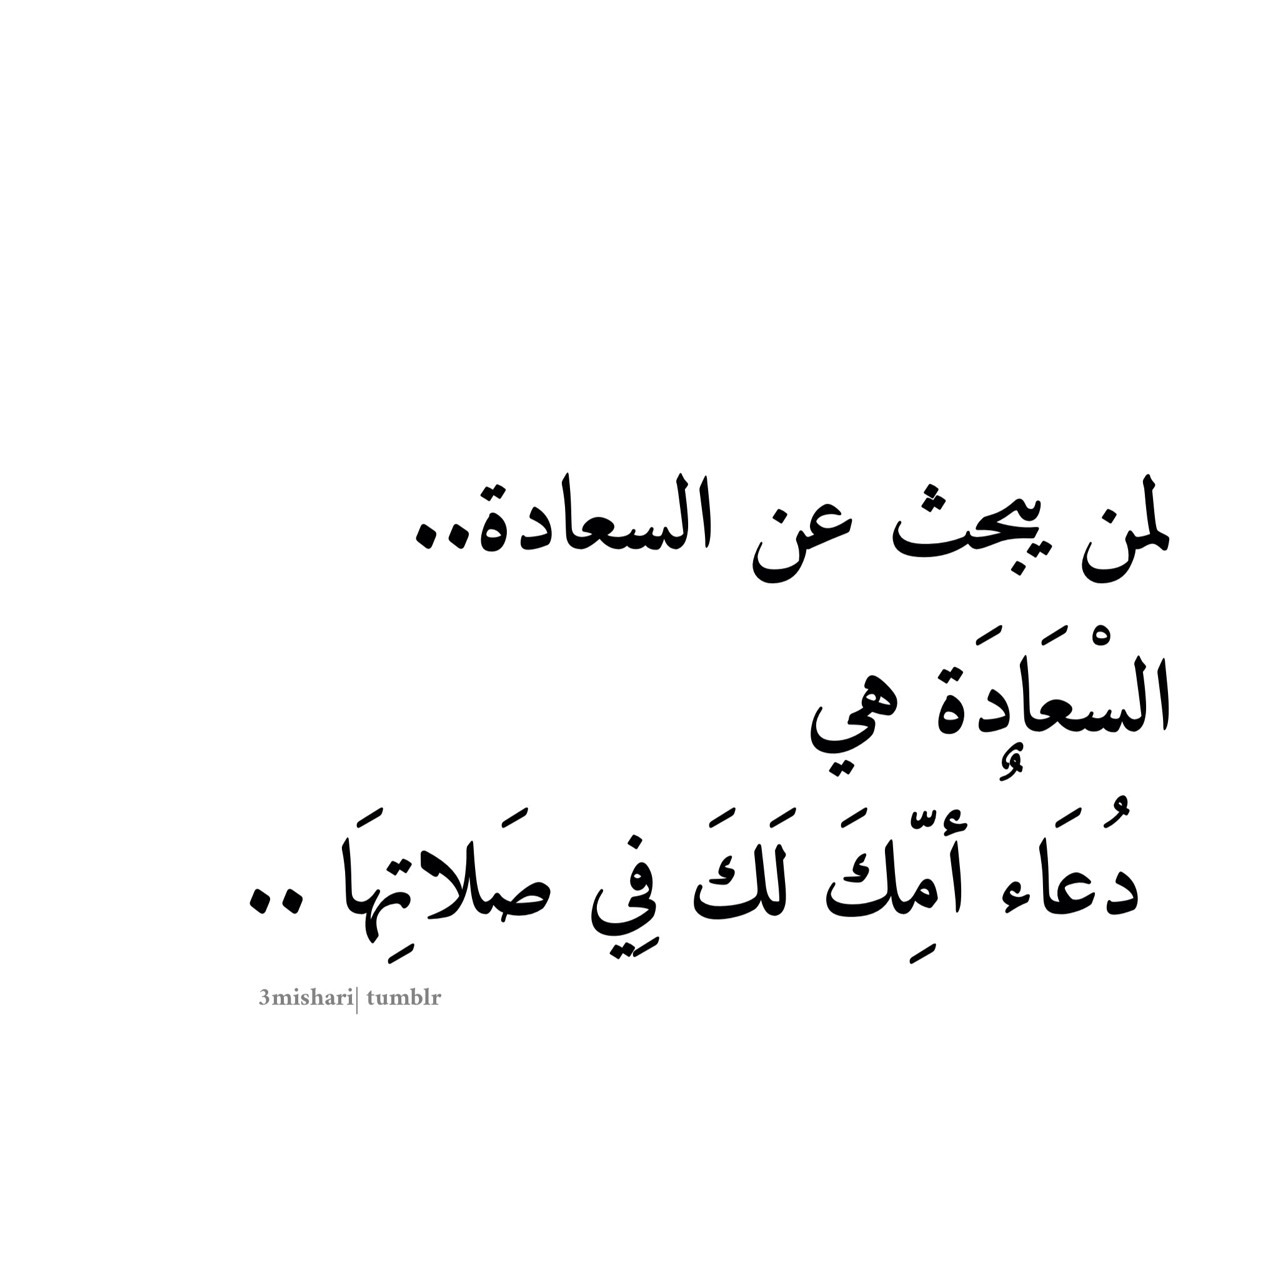 لمن يبحث عن السعادة..
السْعَادَة هي
دُعَاء أمِّكَ لَكَ فِي صَلاتِهَا ..
3mishari| tumblr